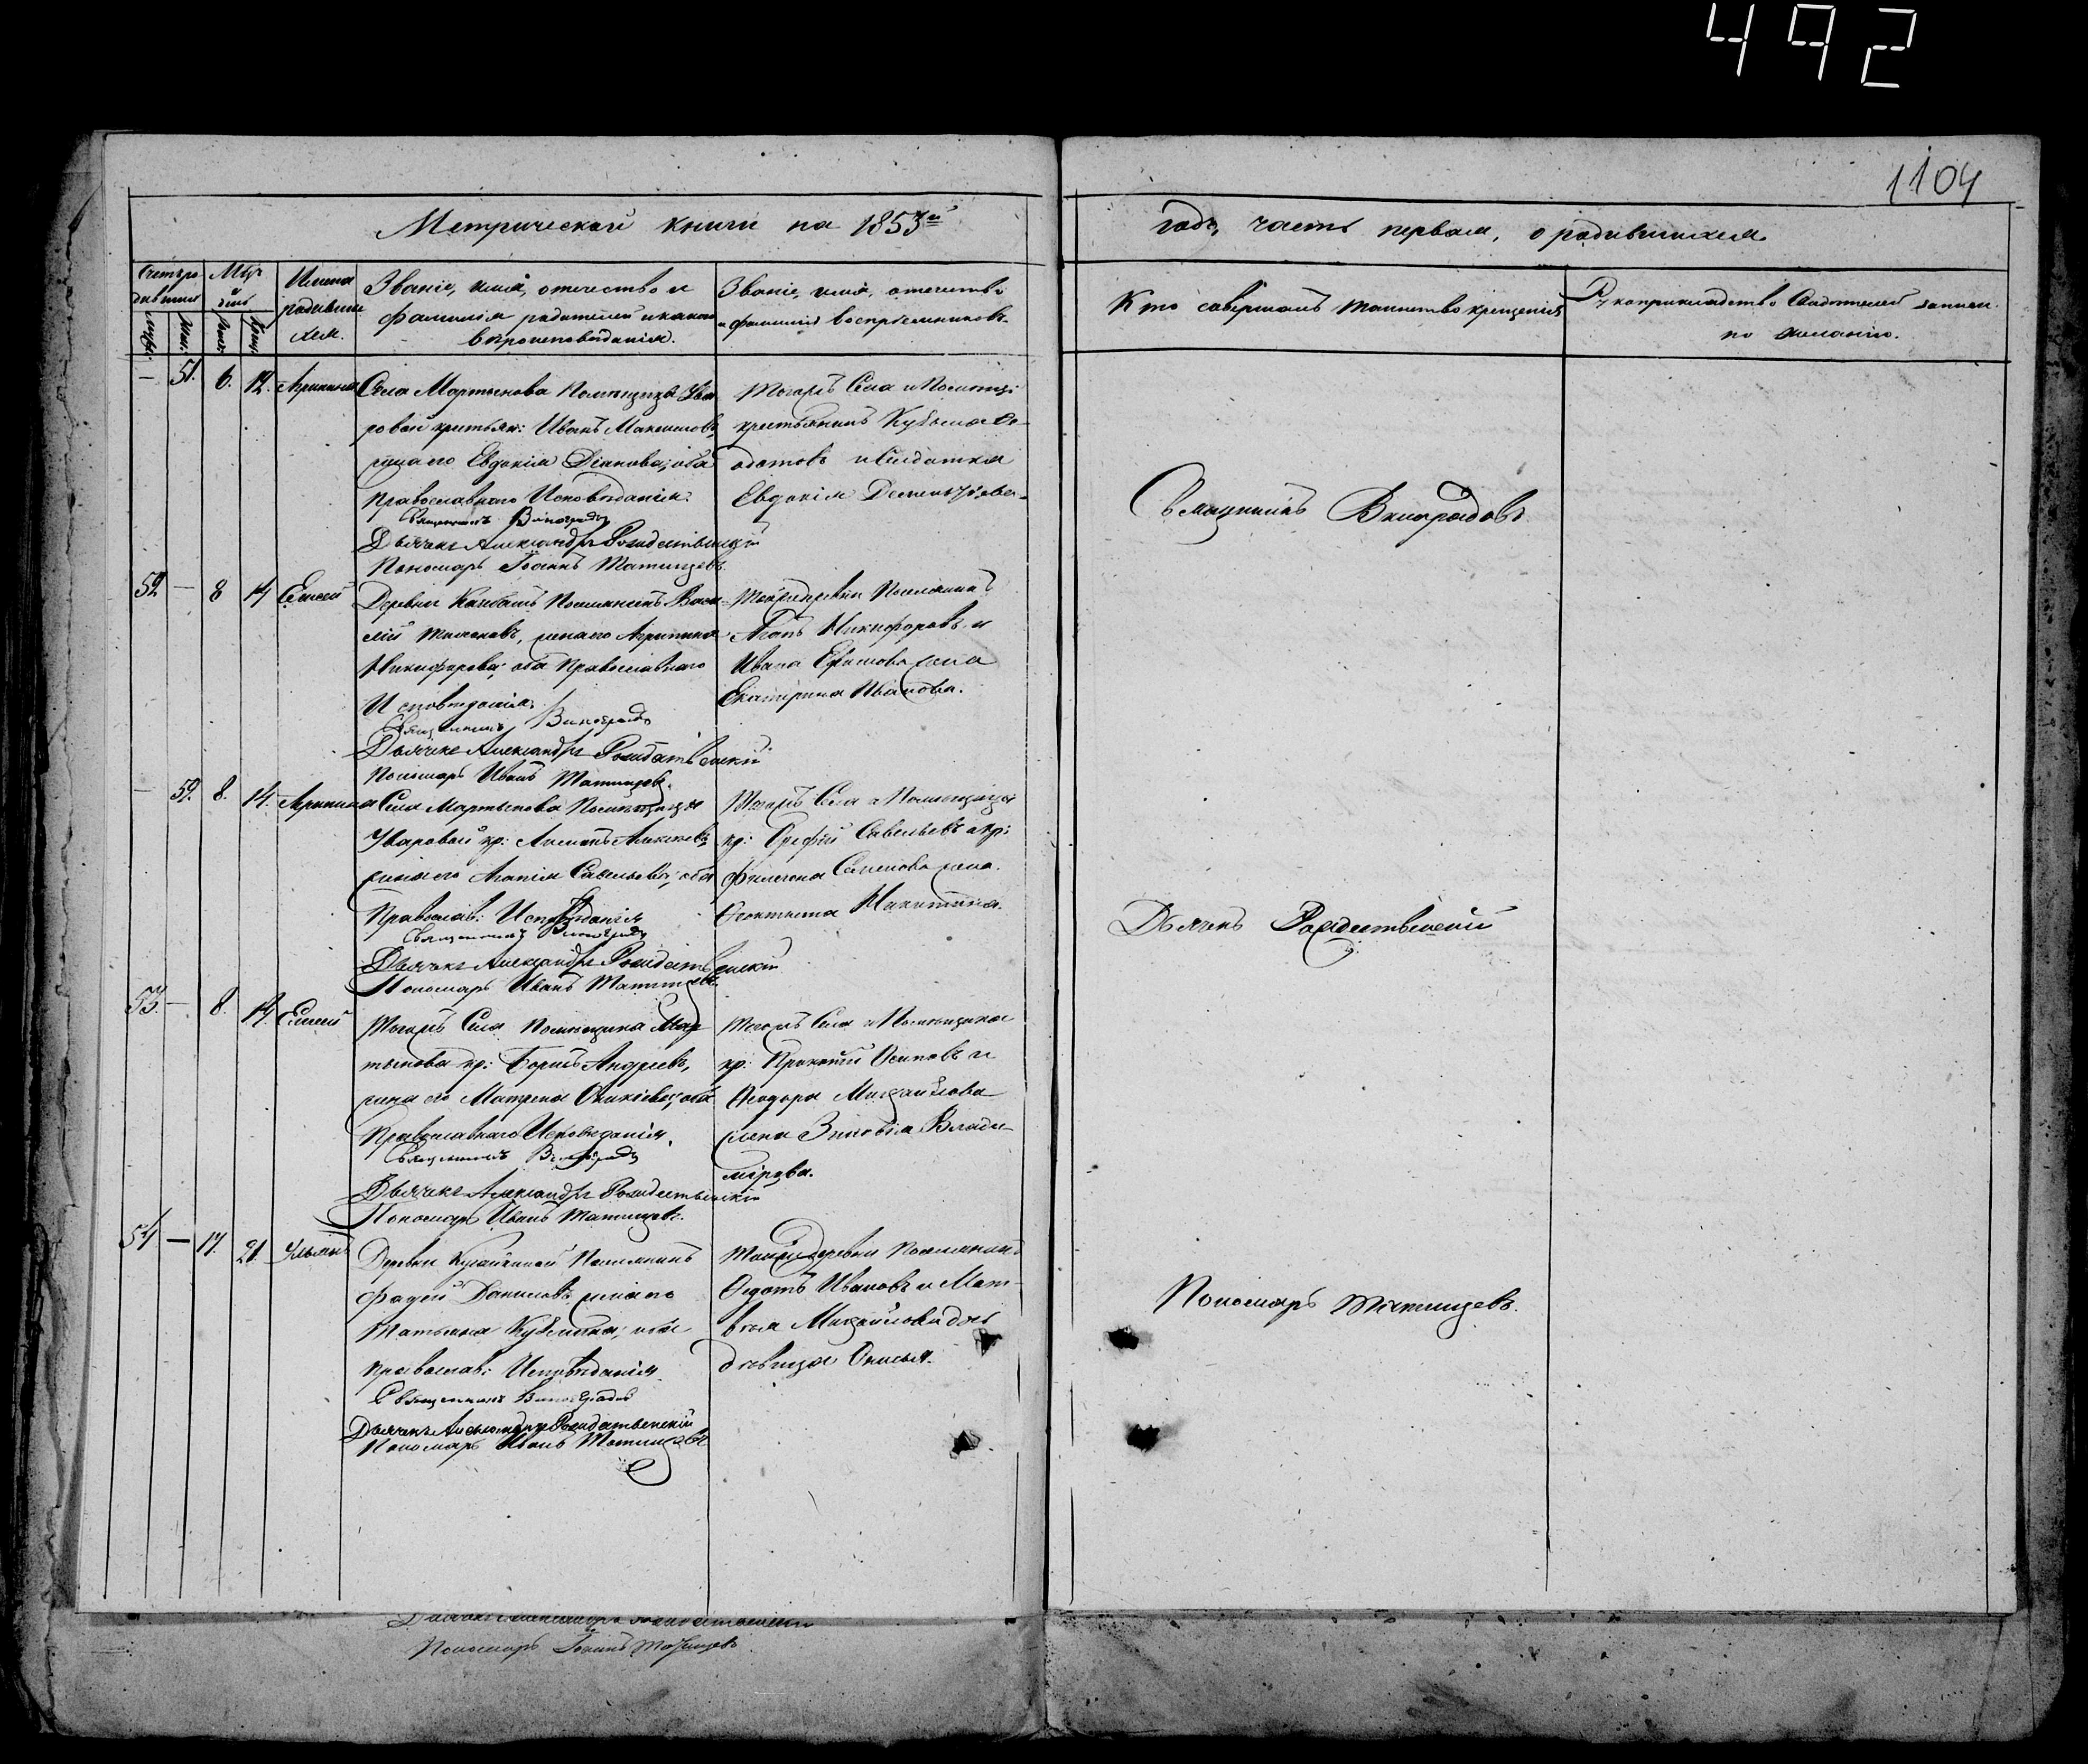 492
1104
Метрической книги на 1853й
годъ, часть первая, о родившихся.
Счетъ ро-
дившихся
Мѣс.
и
день
Имена
родивши
хся.
Званіе, имя, отечество и
фамилія родителей и какого
вѣроисповѣданія.
Званіе, имя, отечество
и фамилія воспріемниковъ.
Кто совершалъ таинство крещенія
Рукоприкладство Свидѣтелей записи
по желанію.
— 51. 6. 12. Агрипина
Села Мартынова Помѣщицы Ува
ровой крестьян: Иванъ Максимовъ,
жена его Евдокія оба
Православнаго Исповѣданія.
Священникъ Виноградовъ
Дьячекъ Александръ Рождественскій
Пономарь Іоаннъ Татищевъ.
Тогожъ Села и Помѣщи:
крестьянинъ Кузьма Ѳе-
дотовъ и Солдатка
Евдокія Дементьева.
Священникъ Виноградовъ
52 — 8 14 Елисей
Деревни Поселянинъ Васи-
лій жена его Агрипина
Никифорова; оба Православнаго
Исповѣданія.
Священникъ Виноградовъ
Дьячекъ Александръ Рождественскій
Пономарь Иванъ Татищевъ.
Тойже деревни Поселянинъ
Никифоровъ и
Ивана Ефимова жена
Екатерина Иванова.
— 52. 8. 14. Агрипина
Села Мартынова Помѣщицы
Уваровой кр: Алексѣевъ,
жена его Агапія Савельева, оба
Православ: Исповѣданія
Священникъ Виноградовъ
Дьячекъ Александръ Рождественскій
Пономарь Иванъ Татищевъ.
Тогожъ Села и Помѣщицы
кр: Савельевъ и кр:
Филипа Семенова жена
Никитина.
Дьячекъ Рождественскій
53. — 8. 14. Елисей
Тогожъ Села Помѣщика Мар
тынова кр: Борисъ Андреевъ,
жена его Матрена оба
Православнаго Исповѣданія.
Священникъ Виноградовъ
Дьячекъ Александръ Рождественскій
Пономарь Иванъ Татищевъ.
Тогожъ Села и Помѣщика
кр: Прокопій Осиповъ и
Ѳеодора Михайлова
жена Зиновія Влади-
мірова.
54 — 14. 21. Ульянъ
Деревни Поселянинъ
Фадей Даниловъ, жена его
Татьяна Кузьмина; оба
Православ: Исповѣданія.
Священникъ Виноградовъ
Дьячекъ Александръ Рождественскій
Пономарь Иванъ Татищевъ
Тойже деревни Поселянинъ
Ѳедотъ Ивановъ и Мат-
вѣя Михайлова дочь
дѣвица Анисья.
Пономарь Татищевъ.
Дьячекъ Александръ Рождественскій
Пономарь Іоаннъ Татищевъ